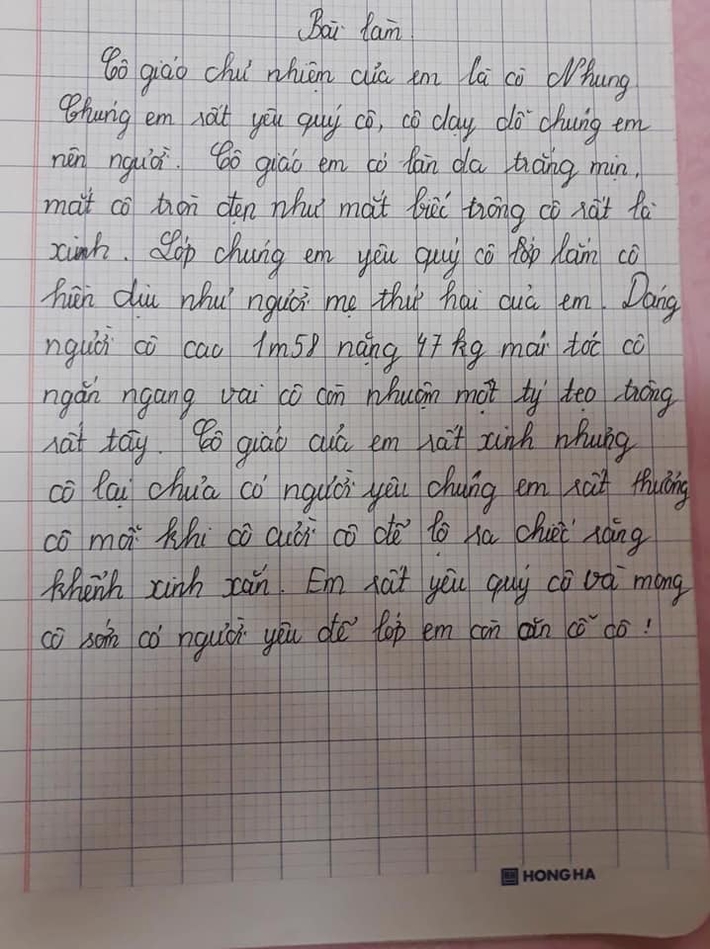 Bài làm
Cô giáo chủ nhiệm của em là cô Nhung
Chúng em rất yêu quý cô, cô dạy dỗ chúng em
nên người. Cô giáo em có làn da trắng mịn,
mắt cô tròn đẹn như mắt biếc trông cô rất là
xinh. Lớp chúng em yêu quý cô lắm cô
hiền dịu như người mẹ thứ hai của em. Dáng
người cô cao 1m58 nặng 47 kg mái tóc cô
ngắn ngang vai cô còn nhuộm một tý tẹo trông
rất tây. Cô giáo của em rất xinh nhưng
cô lại chưa có người yêu chúng em rất thương
cô mỗi khi cô cười cô để lộ ra chiếc răng
khểnh xinh xắn. Em rất yêu quý cô và mong
cô sớm có người yêu để lớp em còn ăn cỗ cô!
HONG HA